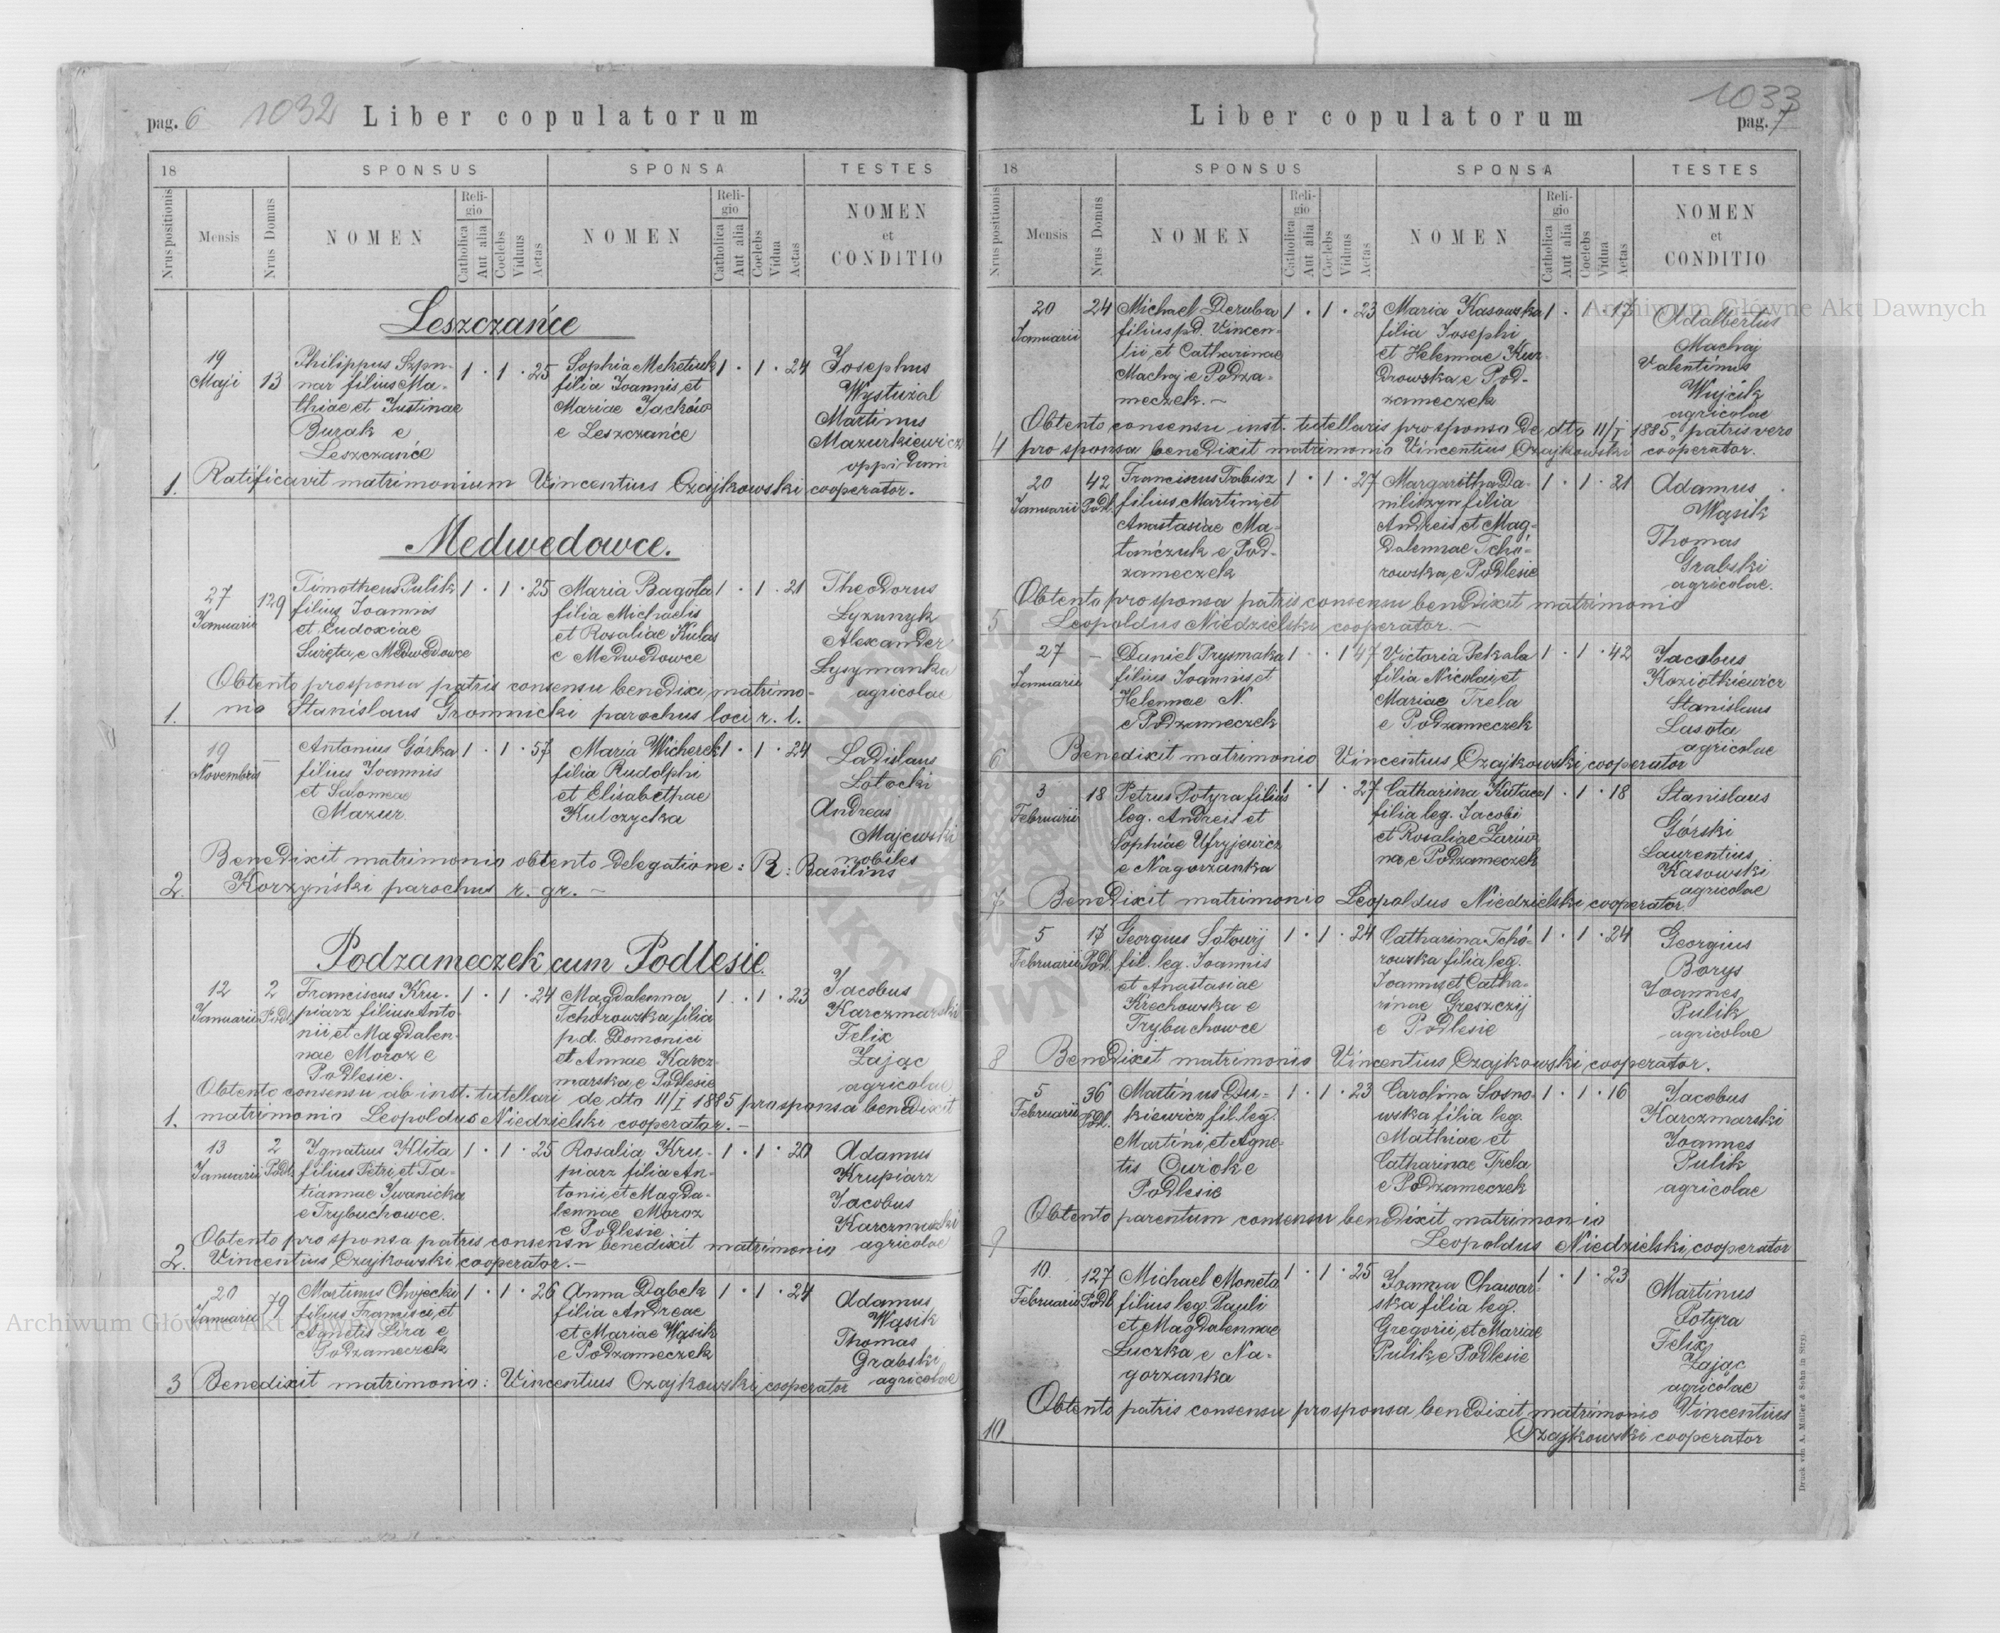 pag. 6
1032
Liber copulatorum
18
SPONSUS
SPONSA
TESTES
Nrus positionis
Mensis
Nrus Domus
NOMEN
Religio
Catholica
Aut alia
Coelebs
Viduus
Aetas
NOMEN
Religio
Catholica
Aut alia
Coelebs
Vidua
Aetas
NOMEN
et
CONDITIO
Leszczańce
19 Maji
13
Philippus
nar filius Ma-
thiae et Justinae
Burak e
Leszczańce
1 · 1 · 25
Sophia Meketiuk
filia Joannis et
Mariae Jacków
e Leszczańce
1 · 1 · 24
Josephus
Martinus
Mazurkiewicz
oppidani
1. Ratificavit matrimonium Vincentius Czajkowski cooperator.
Medwedowce.
27 Januarii
129
Timotheus Pulik
filius Joannis
et Eudoxiae
Święta e Medwedowce
1 · 1 · 25
Maria Bagota
filia Michaelis
et Rosaliae Kulas
e Medwedowce
1 · 1 · 21
Theodorus
Alexander
agricolae
Obtento pro sponsa patris consensu benedixi matrimo-
1. nio Stanislaus Gromnicki parochus loci r. l.
19 Novembris
–
Antonius Górka
filius Joannis
et Salomeae
Mazur
1 · 1 · 57
Maria Wicherek
filia Rudolphi
et Elisabethae
Kulczycka
1 · 1 · 24
Ladislaus
Lotocki
Andreas
Majewski
nobiles
Benedixit matrimonio obtento delegatione: R: Basilius
2. Korzyński parochus r. gr. –
Podzameczek cum Podlesie.
12 Januarii
2 Podl.
Franciscus Kru-
piarz filius Anto-
nii, et Magdalen-
nae Moroz e
Podlesie.
1 · 1 · 24
Magdalenna
Tchórowska filia
pd. Domonici
et Annae Karcz-
marska, e Podlesie
1 · 1 · 23
Jacobus
Karczmarski
Felix
Zając
agricolae
Obtento consensu ab inst. tutellari de dto 11/I 1885 pro sponsa benedixit
1. matrimonio Leopoldus Niedzielski cooperator. –
13 Januarii
2 Podl.
Ignatius Klita
filius Petri et Ta-
tiannae Iwanicka
e Trybuchowce.
1 · 1 · 25
Rosalia Kru-
piarz filia An-
tonii, et Magda-
lennae Moroz
e Podlesie
1 · 1 · 20
Adamus
Krupiarz
Jacobus
Karczmarski
agricolae
Obtento pro sponsa patris consensu benedixit matrimonio
2. Vincentius Czajkowski cooperator. –
20 Januarii
79
Martinus Chojecki
filius Francisci, et
Agnetis Lira e
Podzameczek
1 · 1 · 26
Anna Dąbek
filia Andreae
et Mariae Wąsik
e Podzameczek
1 · 1 · 24
Adamus
Wąsik
Thomas
Grabski
agricolae
3 Benedixit matrimonio: Vincentius Czajkowski, cooperator
1033
pag. 7
Liber copulatorum
18
SPONSUS
SPONSA
TESTES
Nrus positionis
Mensis
Nrus Domus
NOMEN
Religio
Catholica
Aut alia
Coelebs
Viduus
Aetas
NOMEN
Religio
Catholica
Aut alia
Coelebs
Vidua
Aetas
NOMEN
et
CONDITIO
20 Januarii
24
Michael Deruba
filius pd. Vincen-
tii, et Catharinae
Machaj e Podza-
meczek. –
1 · 1 · 23
Maria Kasowska
filia Josephi
et Helennae Kur-
drowska, e Pod-
zameczek
1 · 17
Adalbertus
Machaj
Valentinus
Wójcik
agricolae
Obtento consensu inst. tutellaris pro sponso de dto 11/I 1885, patris vero
4 pro sponsa benedixit matrimonio Vincentius Czajkowski cooperator.
20 Januarii
42 Podl.
Franciscus Trabisz
filius Martini, et
Anastasiae Ma-
tańczuk e Pod-
zameczek
1 · 1 · 27
Margaritha Da-
niliszyn filia
Andreis et Mag-
dalennae Tchó-
rowska, e Podlesie
1 · 1 · 21
Adamus
Wąsik
Thomas
Grabski
agricolae.
Obtento pro sponsa patris consensu benedixit matrimonio
5 Leopoldus Niedzielski, cooperator. –
27 Januarii
–
Daniel Prysmaka
filius Joannis, et
Helennae N.
e Podzameczek
1 · · 1 47
Victoria Pekala
filia Nicolai, et
Mariae Trela
e Podzameczek
1 · 1 · 42
Jacobus
Koziołkiewicz
Stanislaus
Lasota
agricolae
6 Benedixit matrimonio Vincentius Czajkowski, cooperator
3 Februarii
18
Petrus Potyra filius
leg. Andreis et
Sophiae Ufryjewicz
e Nagorzanka
1 · 27
Catharina Kutacz
filia leg. Jacobi
et Rosaliae
na, e Podzameczek
1 · 1 · 18
Stanislaus
Górski
Laurentius
Kasowski
agricolae
7 Benedixit matrimonio Leopoldus Niedzielski, cooperator.
5 Februarii
17 Podl.
Georgius Sołowij
fil. leg. Joannis
et Anastasiae
Krechowska e
Trybuchowce
1 · 1 · 24
Catharina Tchó-
rowska filia leg.
Joannis, et Catha-
rinae Greszczij
e Podlesie
1 · 1 · 24
Georgius
Borys
Joannes
Pulik
agricolae
8 Benedixit matrimonio Vincentius Czajkowski, cooperator.
5 Februarii
36 Podl.
Martinus Du-
kiewicz fil. leg.
Martini, et Agne-
tis
Podlesie
1 · 1 · 23
Carolina Sosno-
wska filia leg.
Mathiae et
Catharinae Trela
e Podzameczek
1 · 1 · 16
Jacobus
Karczmarski
Joannes
Pulik
agricolae
Obtento parentum consensu benedixit matrimonio
9 Leopoldus Niedzielski, cooperator
10. Februarii
127 Podl.
Michael Moneta
filius leg. Pauli
et, Magdalennae
Łuczka e Na-
gorzanka
1 · 1 · 25
Joanna Chawar-
ska filia leg.
Gregorii, et Mariae
Pulik, e Podlesie
1 · 1 · 23
Martinus
Potyra
Felix
Zając
agricolae
Obtento patris consensu pro sponsa, benedixit matrimonio Vincentius
10. Czajkowski cooperator
Druck von A. Müller & Sohn in Stryj.
Archiwum Główne Akt Dawnych
Archiwum Główne Akt Dawnych